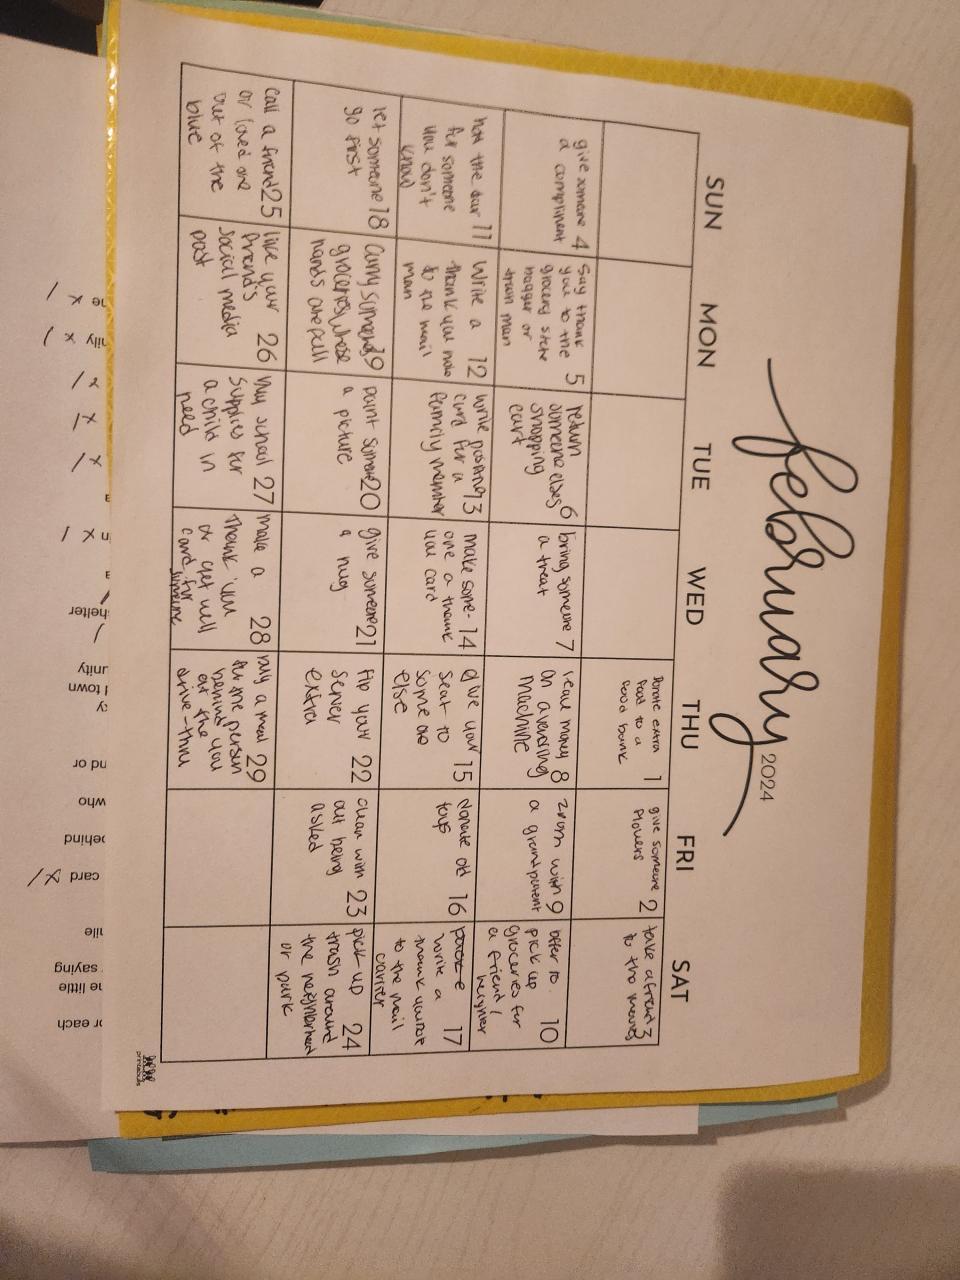 february 2024
SUN MON TUE WED THU FRI SAT
Donate extra 1
food to a
food bank
give someone 2
flowers
take a friend 3
to the movies
give someone 4
a compliment
Say thank
you to the 5
grocery store
bagger or
train man
return
someone elses 6
shopping
cart
bring someone 7
a treat
leave money 8
on a vending
machine
zoom with 9
a grandparent
offer to
pick up 10
groceries for
a friend /
neighbor
11
for someone
you don't
know
Write a 12
thank you note
to the mail
man
write 13
card for a
family member
make some- 14
one a thank
you card
give your 15
seat to
some one
else
donate old 16
toys
write a 17
thank you note
to the mail
carrier
let someone 18
go first
carry someones 19
groceries whose
hands are full
paint someone 20
a picture
give someone 21
a hug
tip your 22
server
extra
clean with 23
out being
asked
pick up 24
trash around
the neighborhood
or park
call a friend 25
or loved one
out of the
blue
like your
friend's 26
social media
post
buy school 27
supplies for
a child in
need
make a 28
thank you
or get well
card for
someone
buy a meal 29
for the person
behind you
at the
drive-thru
printabulls
ne x /
nily x /
x /
x /
x /
n x /
helter
/
unity
d town
ty
nd or
who
behind
card x /
nile
saying
ne little
or each